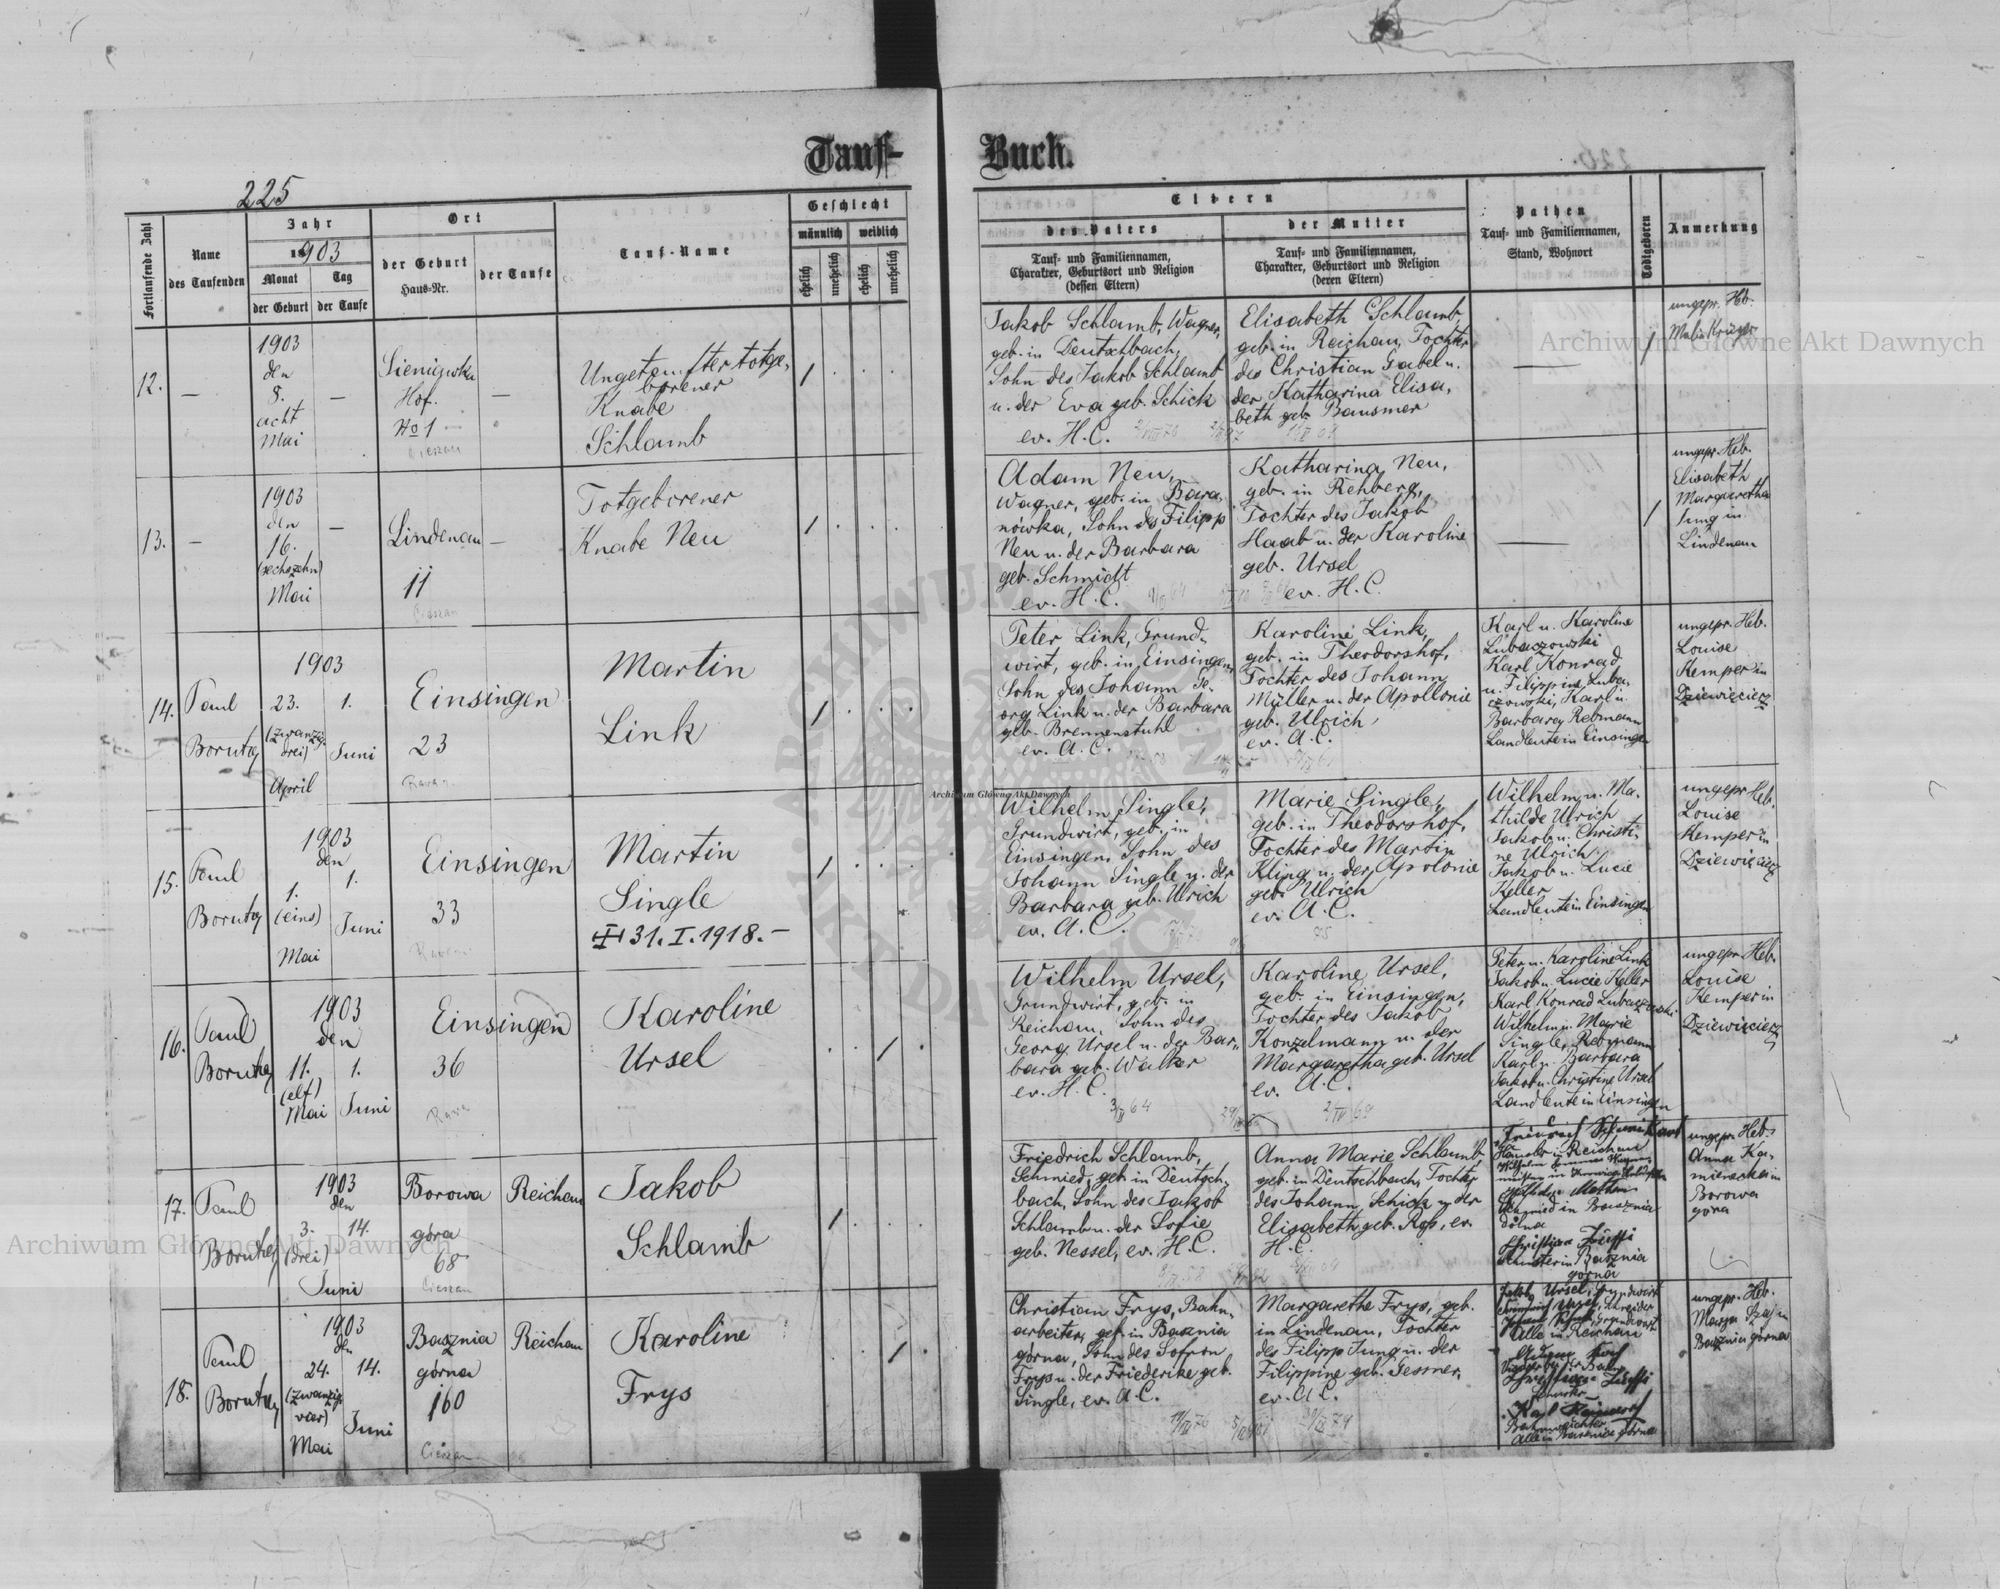 Tauf-
Buch.
225
Fortlaufende Zahl
Name
des Taufenden
Jahr
1903
Monat
Tag
der Geburt
der Taufe
Ort
der Geburt
Haus-Nr.
der Taufe
Tauf-Name
Geschlecht
männlich
weiblich
ehelich
unehelich
ehelich
unehelich
Eltern
des Vaters
Tauf- und Familiennamen,
Charakter, Geburtsort und Religion
(dessen Eltern)
der Mutter
Tauf- und Familiennamen,
Charakter, Geburtsort und Religion
(deren Eltern)
Pathen
Tauf- und Familiennamen,
Stand, Wohnort
Todtgeboren
Anmerkung
12.
—
1903
den
8.
acht
Mai
—
Sieniawka
Hof.
No 1
Cieszan
—
Ungetaufter totge-
borener
Knabe
Schlamb
Jakob Schlamb, Wagner,
geb. in Deutschbach,
Sohn des Jakob Schlamb
u. der Eva geb. Schick
ev. H. C.
Elisabeth Schlamb,
geb. in Reichau, Tochter
des Christian Gabel u.
der Katharina Elisa-
beth geb. Bausmer
ungepr. Heb.
Krüger
13.
—
1903
den
16.
(sechszehn)
Mai
—
Lindenau
11
Cieszan
—
Totgeborener
Knabe Neu
Adam Neu,
Wagner, geb. in Bara-
nówka, Sohn des Filipp
Neu u. der Barbara
geb. Schmidt
ev. H. C.
Katharina Neu,
geb. in Rehberg,
Tochter des Jakob
Haab u. der Karoline
geb. Ursel
ev. H. C.
ungepr. Heb.
Elisabeth
Margaretha
Jung in
Lindenau
14.
Paul
Borutzy
1903
23.
(zwanzig
drei)
April
1.
Juni
Einsingen
23
Rawa
Martin
Link
Peter Link, Grund-
wirt, geb. in Einsingen,
Sohn des Johann Ge-
org Link u. der Barbara
geb. Brennenstuhl
ev. A. C.
Karoline Link,
geb. in Theodorshof,
Tochter des Johann
Müller u. der Apollonie
geb. Ulrich,
ev. A. C.
Karl u. Karoline
Lubaczowski
Karl Konrad
u. Filippine Luba-
czowski, Karl u.
Barbara Rebmann
Landleute in Einsingen
ungepr. Heb.
Louise
Kemper in
Dziewięcierz
15.
Paul
Borutzy
1903
den
1.
(eins)
Mai
1.
Juni
Einsingen
33
Martin
Single
31. I. 1918. –
Wilhelm Single,
Grundwirt, geb. in
Einsingen, Sohn des
Johann Single u. der
Barbara geb. Ulrich
ev. A. C.
Marie Single,
geb. in Theodorshof,
Tochter des Martin
Kling u. der Apolonie
geb. Ulrich
ev. A. C.
Wilhelm u. Ma-
thilde Ulrich
Jakob u. Christi-
ne Ulrich
Jakob u. Lucie
Keller
Landleute in Einsingen
ungepr. Heb.
Louise
Kemper in
Dziewięcierz
16.
Paul
Borutzy
1903
den
11.
(elf)
Mai
1.
Juni
Einsingen
36
Rawa
Karoline
Ursel
Wilhelm Ursel,
Grundwirt, geb. in
Reichau, Sohn des
Georg Ursel u. der Bar-
bara geb. Walter
ev. H. C.
Karoline Ursel,
geb. in Einsingen,
Tochter des Jakob
Konzelmann u. der
Margaretha geb. Ursel
ev. A. C.
Peter u. Karoline Link
Jakob u. Lucie Keller
Karl Konrad Lubaczowski
Wilhelm u. Marie
Single, Rebmann
Karl u. Barbara
Jakob u. Christine Ursel
Landleute in Einsingen
ungepr. Heb.
Louise
Kemper in
Dziewięcierz
17.
Paul
Borutzy
1903
den
3.
(drei)
Juni
14.
Borowa
góra
68
Cieszan
Reichau
Jakob
Schlamb
Friedrich Schlamb,
Schmied, geb. in Deutsch-
bach, Sohn des Jakob
Schlamb u. der Sofie
geb. Nessel, ev. H. C.
Anna Marie Schlamb
geb. in Deutschbach, Tochter
des Johann Schick u. der
Elisabeth geb. Rops, ev.
H. C.
in Reichau
Schmied in Basznia
dolna
Christian
in Basznia
górna
ungepr. Heb.
Anna Ka-
in
Borowa
góra
18.
Paul
Borutzy
1903
den
24.
(zwanzig
vier)
Mai
14.
Juni
Basznia
górna
160
Cieszan
Reichau
Karoline
Frys
Christian Frys, Bahn-
arbeiter, geb. in Basznia
górna, Sohn des Sofron
Frys u. der Friederike geb.
Single, ev. A. C.
Margarethe Frys, geb.
in Lindenau, Tochter
des Filipp Jung u. der
Filippine geb. Gesner,
ev. A. C.
Jakob Ursel, Grundwirt
Alle in Reichau
Karl
Alle in Basznia górna
ungepr. Heb.
in
Basznia górna
Archiwum Główne Akt Dawnych
Archiwum Główne Akt Dawnych
Archiwum Główne Akt Dawnych